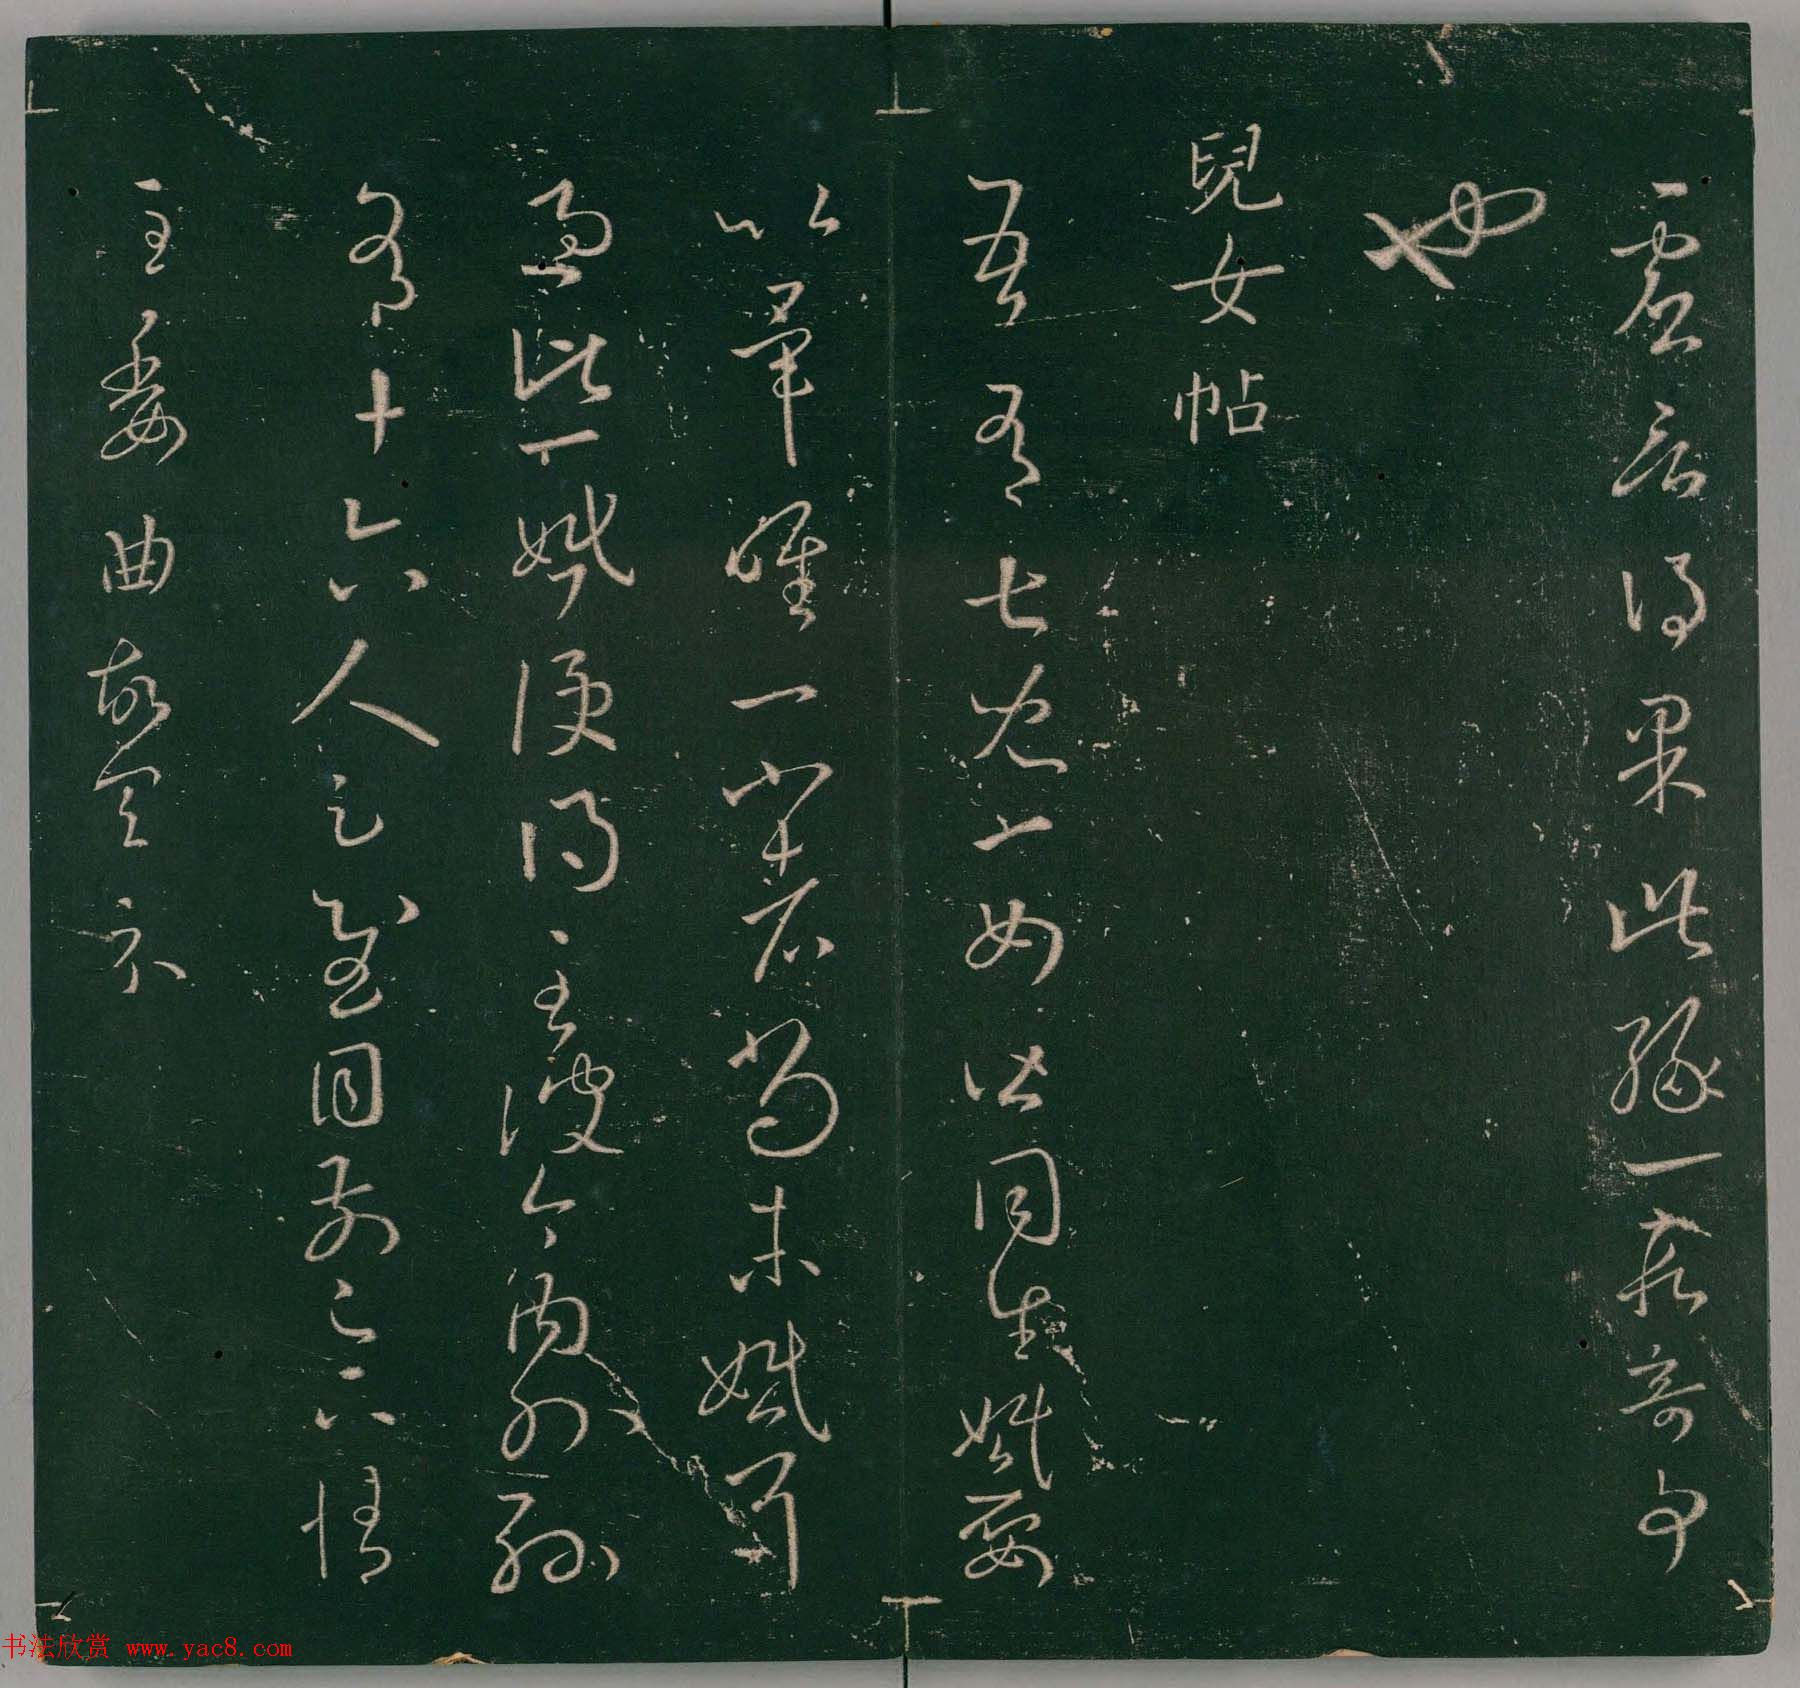 虚言得果此緣一段奇事
也
兒女帖
吾有七兒一女皆同生婚娶
以畢唯一小者尚未婚耳
過此一婚便得至彼今內外孫
有十六人足慰目前足下情
至委曲故具示
书法欣赏 www.yac8.com